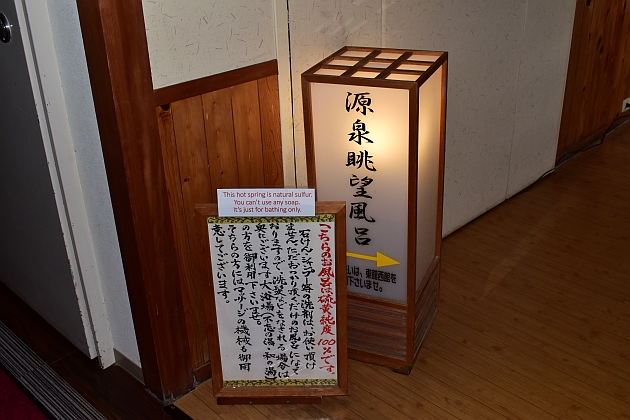 源泉眺望風呂
東館西館を
下さいませ。
This hot spring is natural sulfur.
You can't use any soap.
It's just for bathing only.
こちらのお風呂は硫黄純度100%です。
石けん・シャンプー等の洗剤はお使い頂け
ませんただおつかり頂くだけのお風呂になって
おりますので、洗髪などをなされる場合は
奥にございます大浴場
の方を御利用下さいませ。
そちらの方にはマッサージの機械も御用
意してございます。